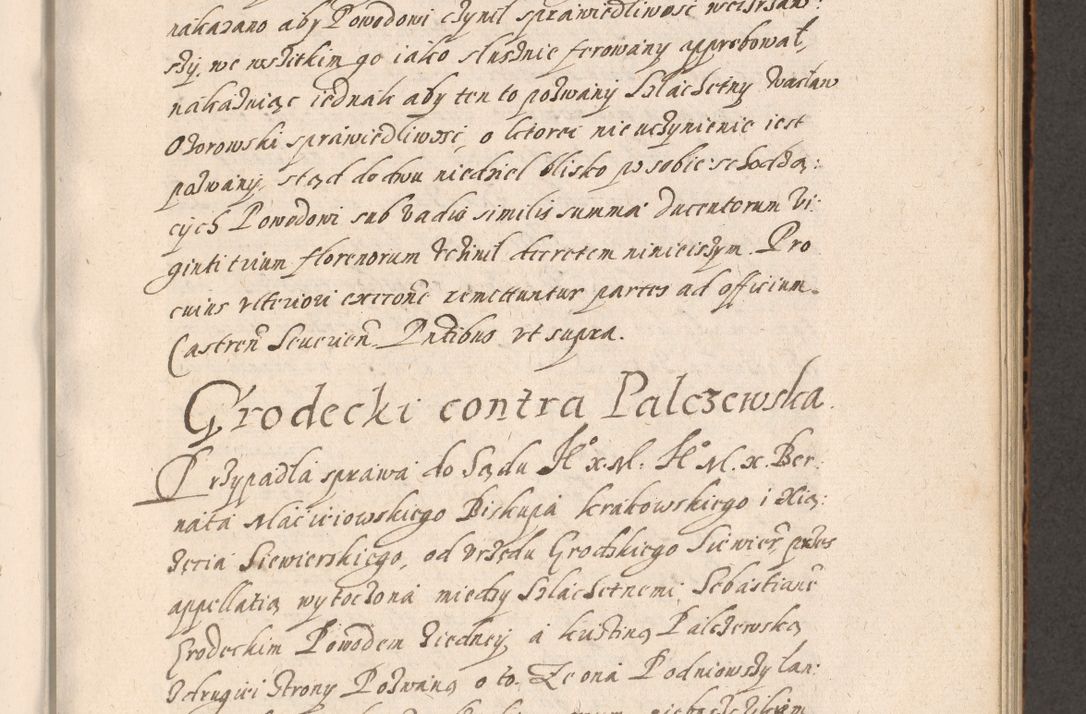 nakazano aby Powodowi czynił sprawiedliwosć
szy, we wszitkim go iako słusznie ferowany approbował,
nakazuiąc iednak aby ten to pozwany Szlachetny Wacław
Ozorowski sprawiedliwosć, o ktorei nie uczynienie iest
pozwany, stąd do dwu niedziel blisko po sobie schodzą:
cych Powodowi sub vadio similis summæ Ducentorum Vi:
ginti trium florenorum vczinił decretem ninieiszym. Pro
cuius vlteriori execone remittuntur partes ad officium
Castren Seuerien. Pntibus vt supra.
Grodecki contra Palczewska.
Przypadła sprawa do Sądu Je° x. M. Je° M. x. Ber:
nata Maciciowskiego Biskupa krakowskiego i Xią:
żęcia Siewierskiego, od Vrzędu Grodzkiego Siewier, przes
appellatią wytoczona między Szlachetnemi, Sebastiane
Grodeckim Powodem ziedney, a kustiną Palczewską
zdrugiei strony Pozwaną o to. Ze ona Podniowszy lan: